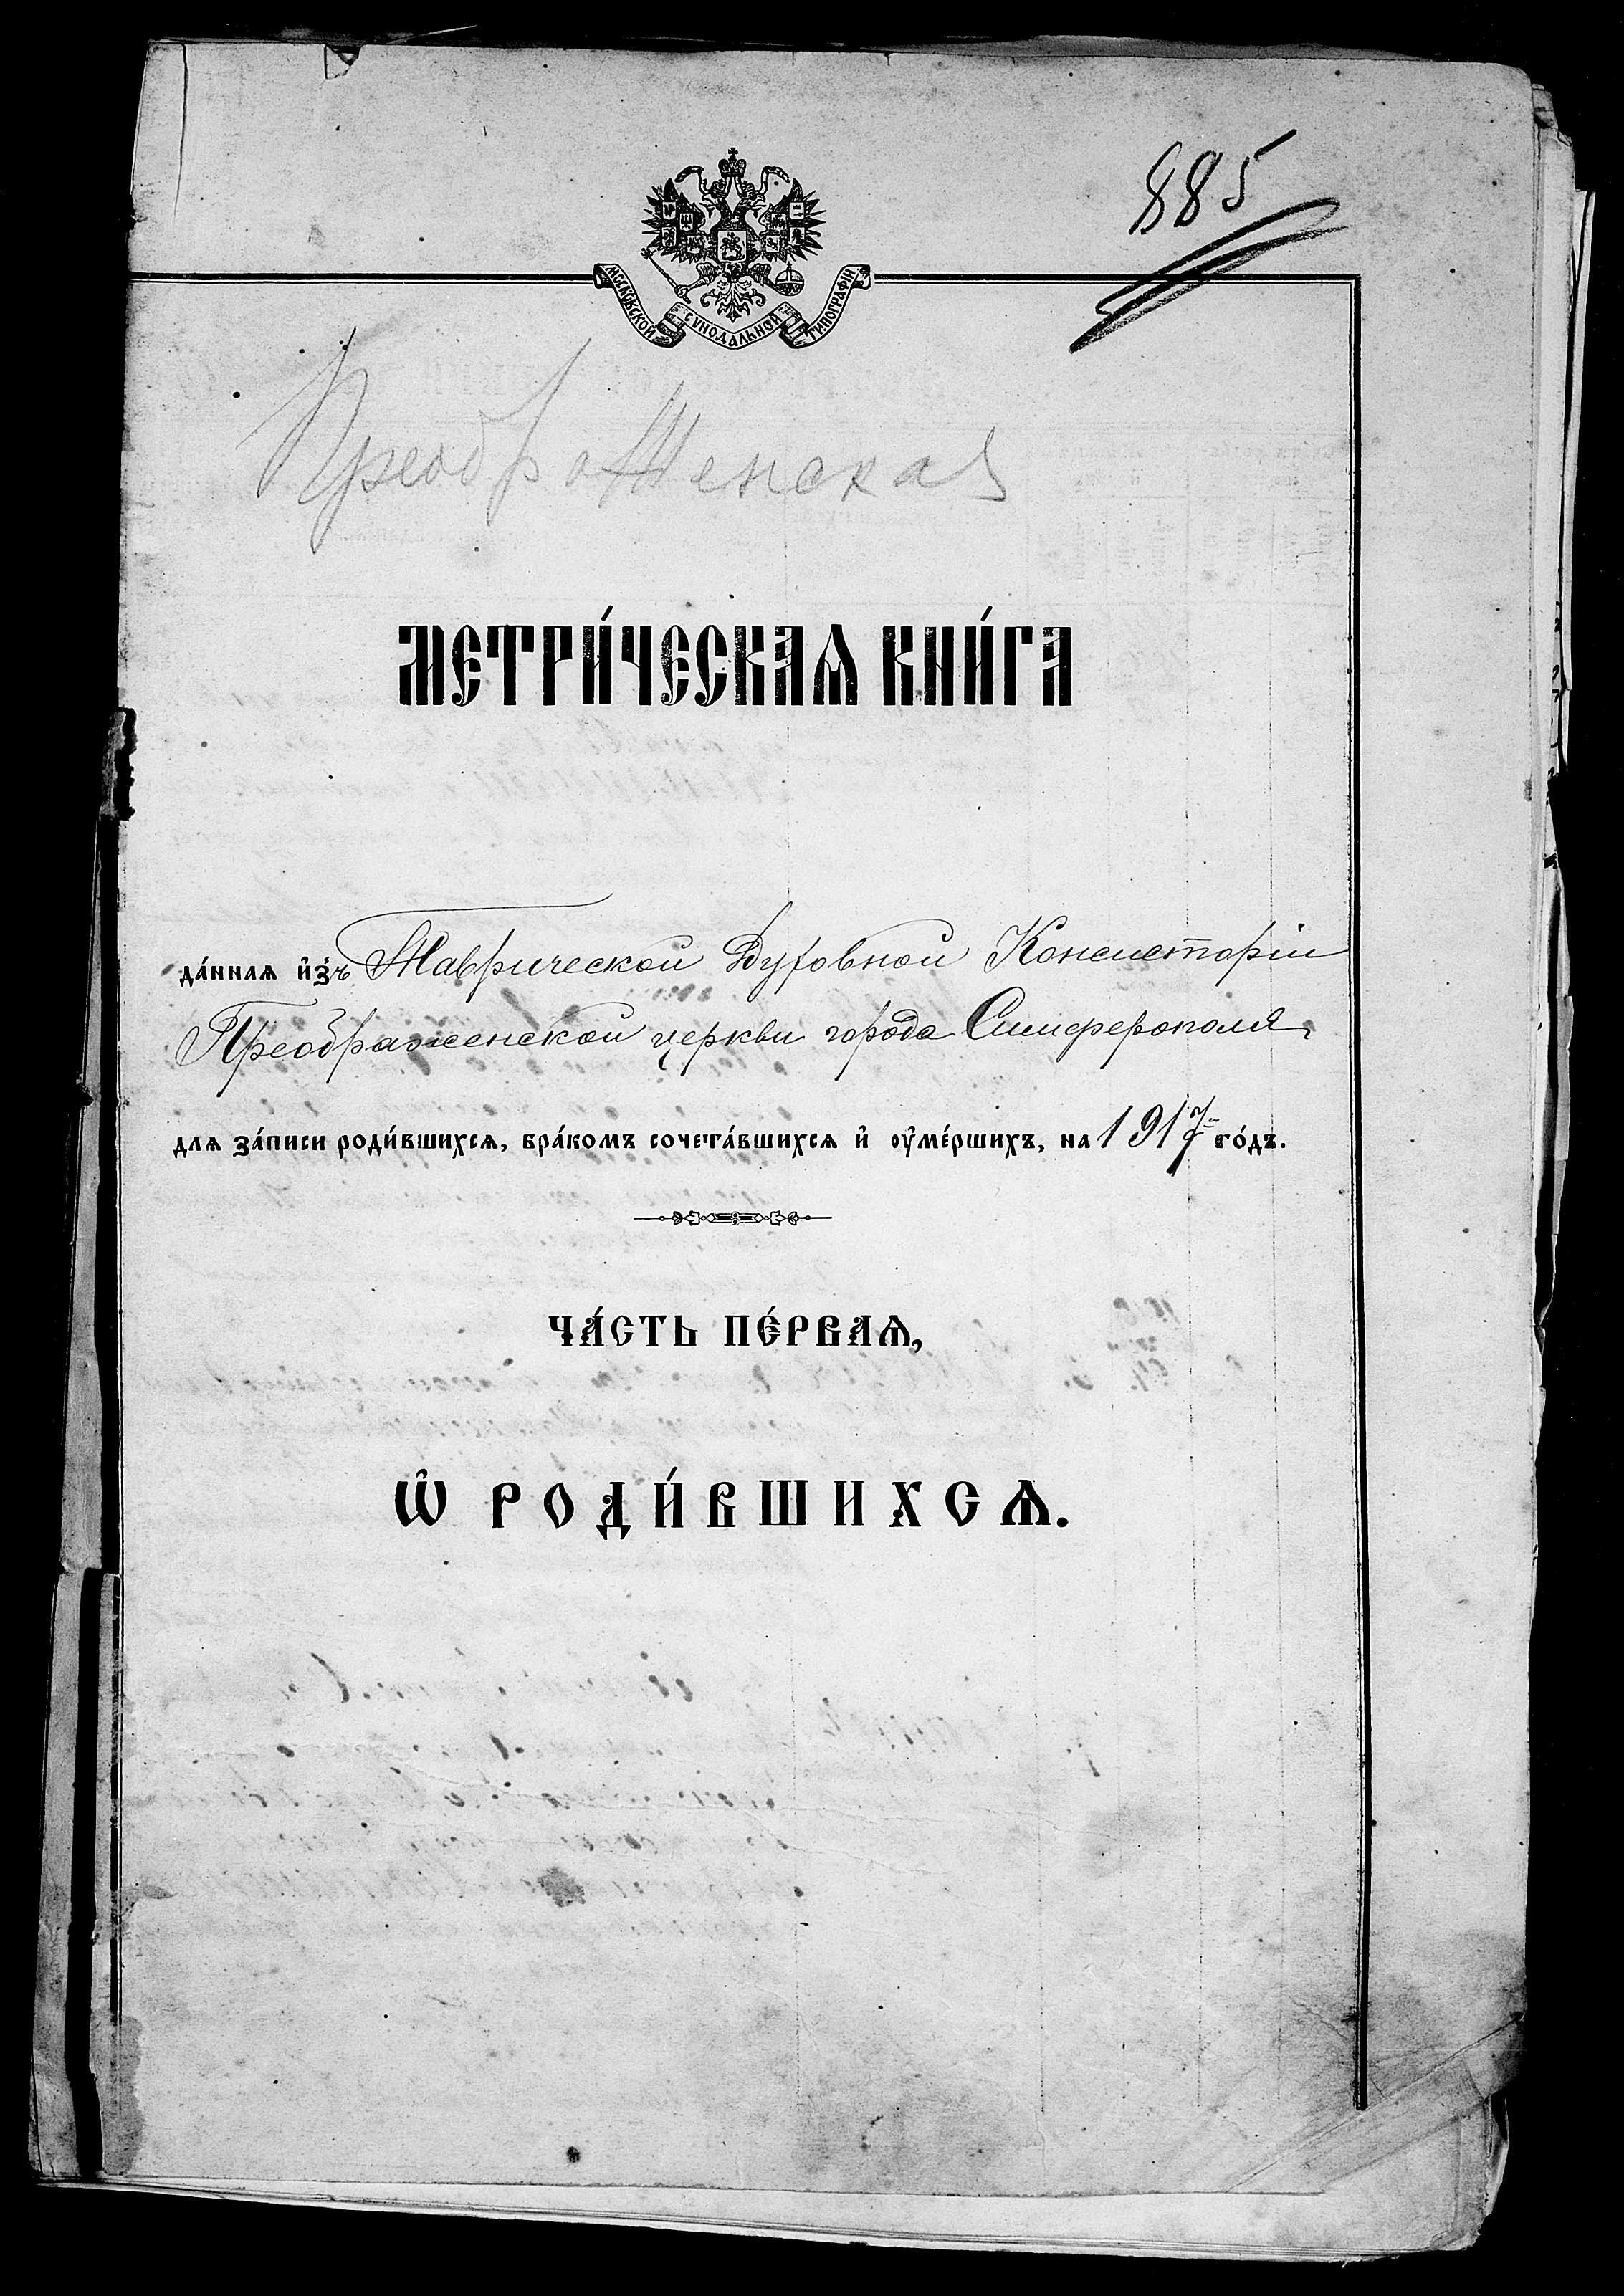 885
МОСКОВСКОЙ СѴНОДАЛЬНОЙ ТИПОГРАФІИ
Преображенская
МЕТРИ́ЧЕСКАѦ КНИ́ГА
да́ннаѧ и҆з̾ Таврической Духовной Консисторіи
Преображенской церкви города Симферополя,
длѧ за́писи роди́вшихсѧ, бра́комъ сочета́вшихсѧ и҆ оу҆ме́ршихъ, на 1917 го́дъ.
ЧА́СТЬ ПЕ́РВАѦ,
Ѽ РОДИ́ВШИХСѦ.